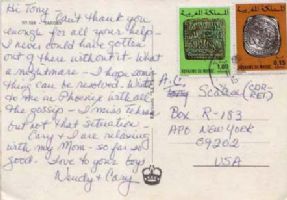 Hi Tony
Can't thank you
enough for all your help -
I never could have gotten
out of there without it. What
a nightmare - I hope some
thing can be resolved. Write
to me in Phoenix with all
the gossip - I miss Tehran
but not that situation
Cary & I are relaxing
with my Mom - so far so
good. Love to your boys
Wendy + Cary
المملكة المغربية
ROYAUME DU MAROC
1.00
المملكة المغربية
ROYAUME DU MAROC
0.15
A.C.
(COR-
RET)
Box R-183
APO NEW YORK
09202
USA